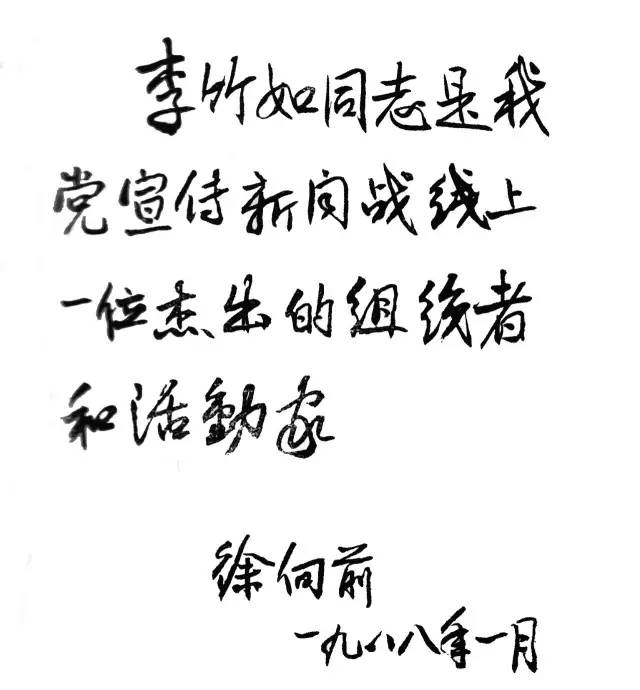 李竹如同志是我
党宣传新闻战线上
一位杰出的组织者
和活動家
徐向前
一九八八年一月